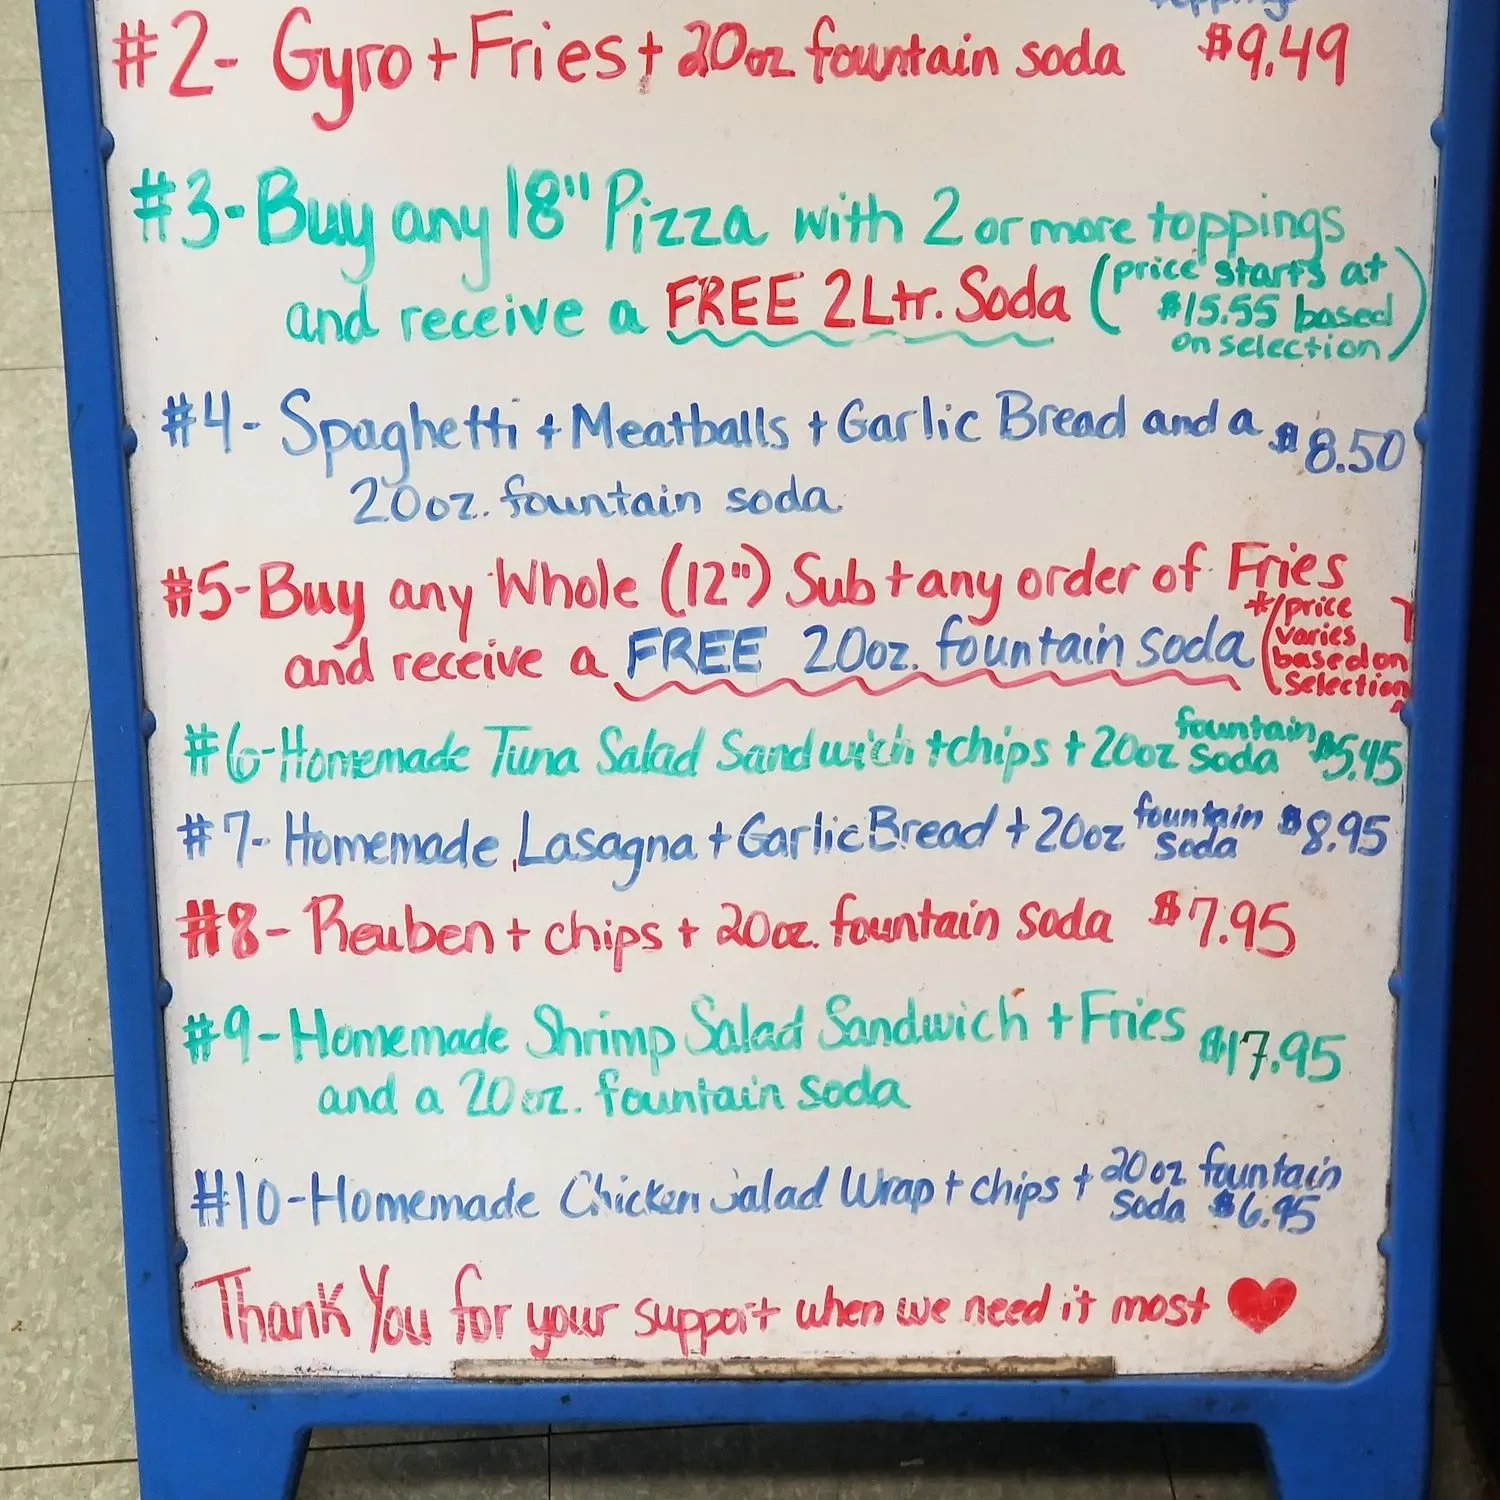 #2- Gyro + Fries + 20oz fountain soda $9.49
#3- Buy any 18" Pizza with 2 or more toppings
and receive a FREE 2 Ltr. Soda (price starts at
$15.55 based
on selection)
#4- Spaghetti + Meatballs + Garlic Bread and a $8.50
20oz. fountain soda
#5- Buy any Whole (12") Sub + any order of Fries
and receive a FREE 20oz. fountain soda
*(price
varies
based on
selection)
#6- Homemade Tuna Salad Sandwich + chips + 20oz fountain soda $5.45
#7- Homemade Lasagna + Garlic Bread + 20oz fountain soda $8.95
#8- Reuben + chips + 20oz. fountain soda $7.95
#9- Homemade Shrimp Salad Sandwich + Fries $17.95
and a 20oz. fountain soda
#10- Homemade Chicken Salad Wrap + chips + 20oz fountain
soda $6.95
Thank You for your support when we need it most ♥